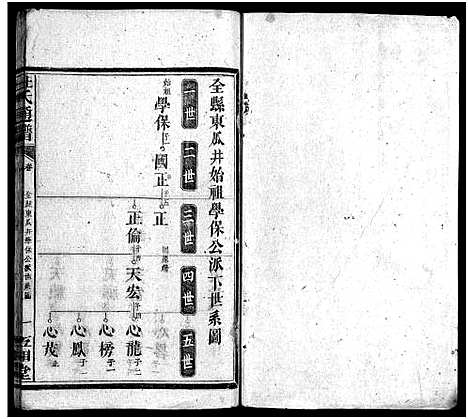 全縣東瓜井始祖學保公派下世系圖
一世 二世 三世 四世 五世
始祖 學保 子一 國正 正
正倫 天宏 心龍 子二
心榜 子一
心鳳 子一
心茂 止
氏通譜 卷 全縣東瓜井學保公派世系圖 一 堂